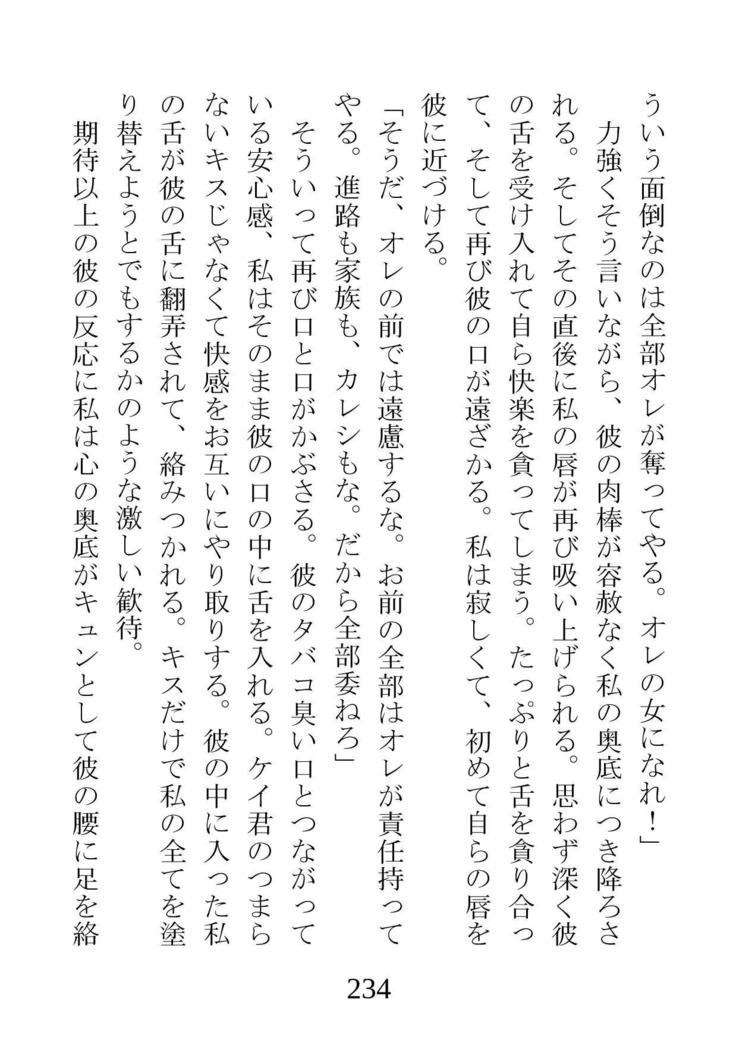 ういう面倒なのは全部オレが奪ってやる。オレの女になれ！」
力強くそう言いながら、彼の肉棒が容赦なく私の奥底につき降ろさ
れる。そしてその直後に私の唇が再び吸い上げられる。思わず深く彼
の舌を受け入れて自ら快楽を貪ってしまう。たっぷりと舌を貪り合っ
て、そして再び彼の口が遠ざかる。私は寂しくて、初めて自らの唇を
彼に近づける。
「そうだ、オレの前では遠慮するな。お前の全部はオレが責任持って
やる。進路も家族も、カレシもな。だから全部委ねろ」
そういって再び口と口がかぶさる。彼のタバコ臭い口とつながって
いる安心感、私はそのまま彼の口の中に舌を入れる。ケイ君のつまら
ないキスじゃなくて快感をお互いにやり取りする。彼の中に入った私
の舌が彼の舌に翻弄されて、絡みつかれる。キスだけで私の全てを塗
り替えようとでもするかのような激しい歓待。
期待以上の彼の反応に私は心の奥底がキュンとして彼の腰に足を絡
234